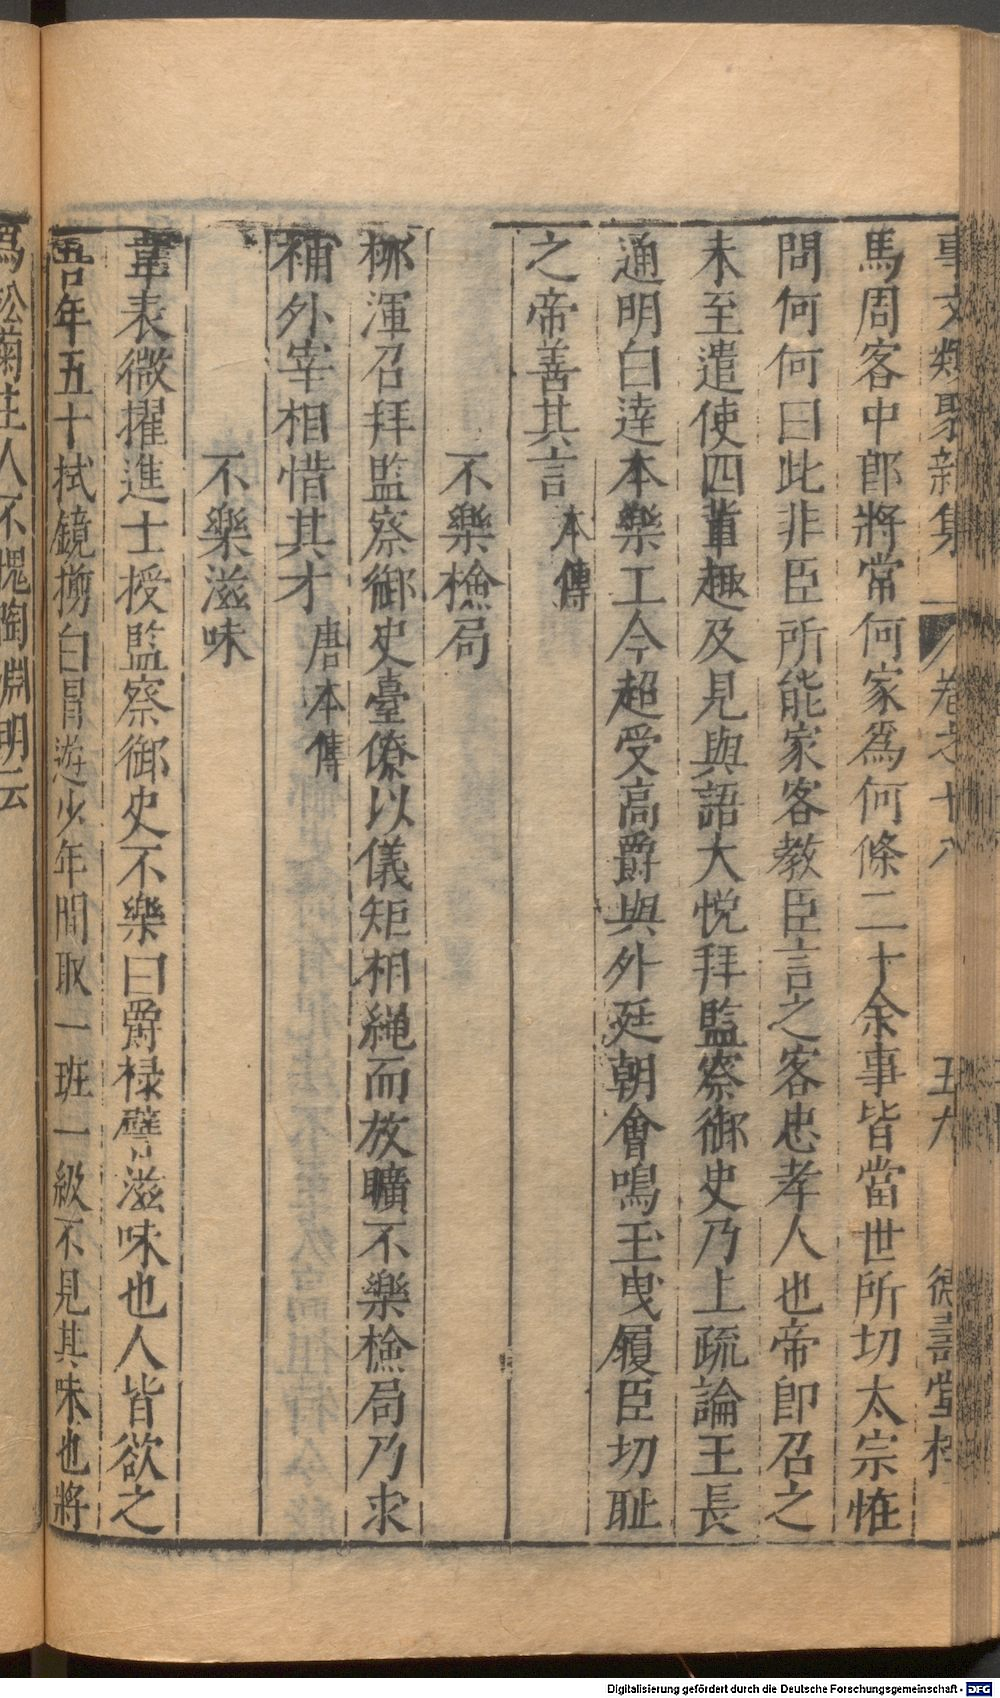 事文類聚新集 卷之十八 五九 德壽堂梓
馬周客中郎將常何家爲何條二十余事皆當世所切太宗恠
問何何曰此非臣所能家客教臣言之客忠孝人也帝卽召之
未至遣使四輩趣及見與語大悅拜監察御史乃上疏論王長
通明白達本樂工今超受高爵與外廷朝會鳴玉曳履臣切耻
之帝善其言 本傳
不樂檢局
柳渾召拜監察御史臺僚以儀矩相繩而放曠不樂檢局乃求
補外宰相惜其才 唐本傳
不樂滋味
韋表微擢進士授監察御史不樂曰爵祿譬滋味也人皆欲之
吾年五十拭鏡搠白冒遊少年間取一班一級不見其味也將
爲松菊主人不愧陶淵明云
Digitalisierung gefördert durch die Deutsche Forschungsgemeinschaft - DFG